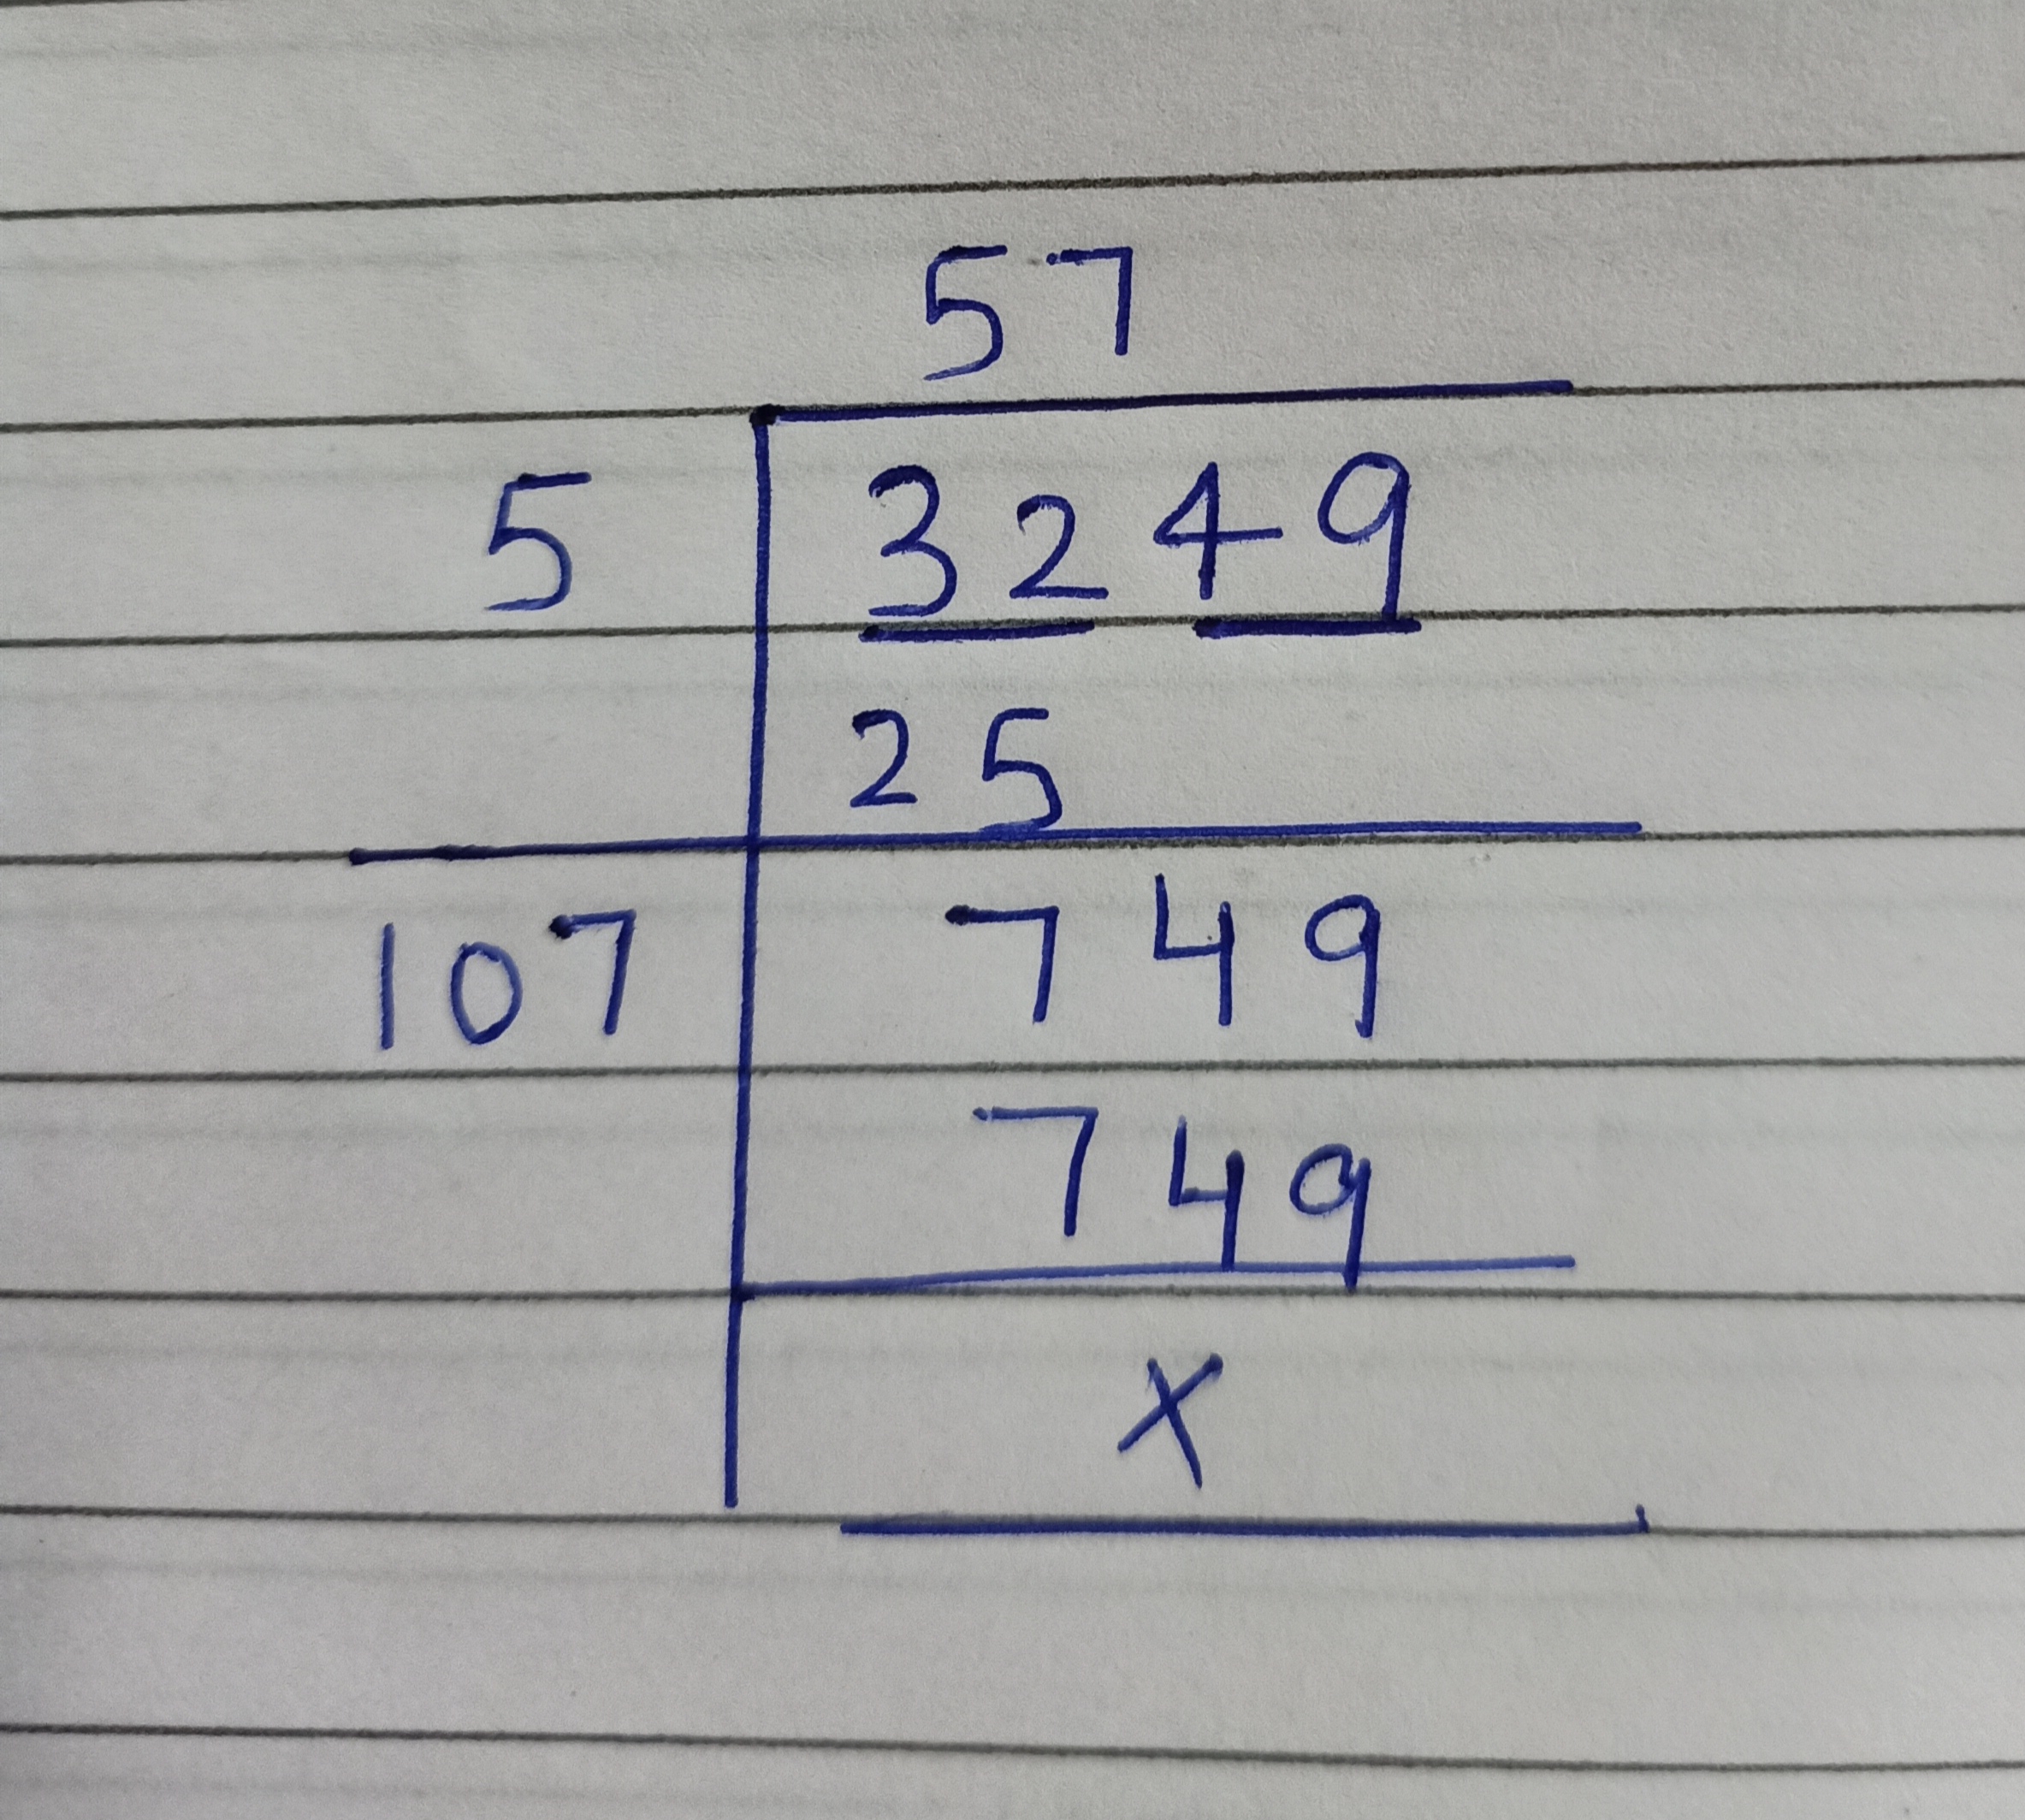 57
5 3249
25
107 749
749
x